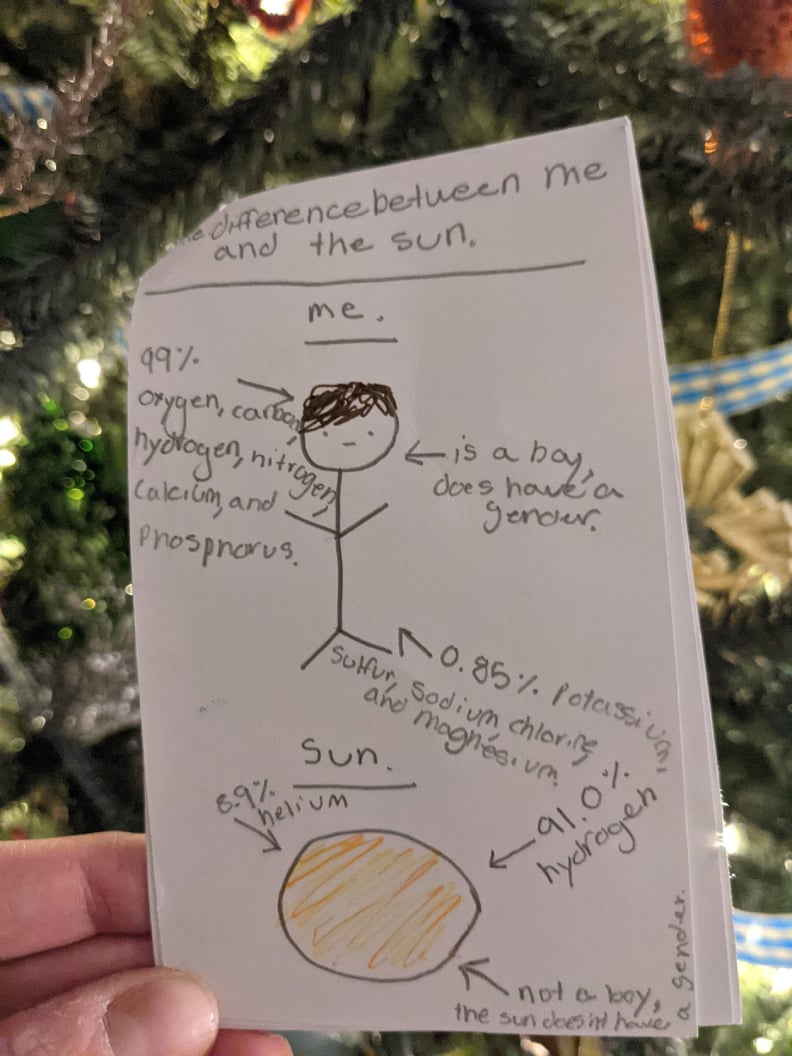 difference between me
and the sun.
me.
99%
oxygen, carbon,
hydrogen, nitrogen,
calcium, and
phosphorus.
is a boy,
does have a
gender.
0.85% potassium,
sulfur, sodium, chlorine,
and magnesium.
Sun.
8.9%
helium
91.0%
hydrogen
not a boy,
the sun does'nt have
a gender.